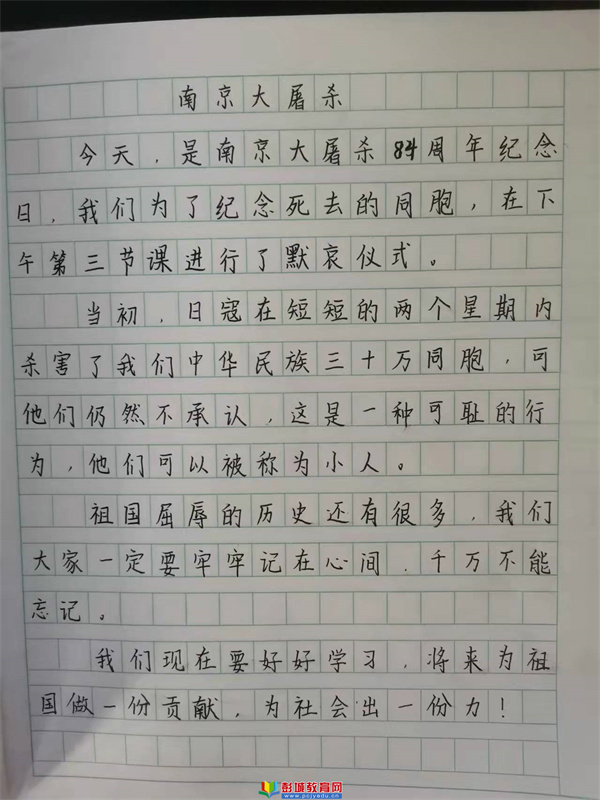 南京大屠杀
今天，是南京大屠杀84周年纪念
日，我们为了纪念死去的同胞，在下
午第三节课进行了默哀仪式。
当初，日寇在短短的两个星期内
杀害了我们中华民族三十万同胞，可
他们仍然不承认，这是一种可耻的行
为，他们可以被称为小人。
祖国屈辱的历史还有很多，我们
大家一定要牢牢记在心间，千万不能
忘记。
我们现在要好好学习，将来为祖
国做一份贡献，为社会出一份力！
彭城教育网
www.pcjyedu.cn